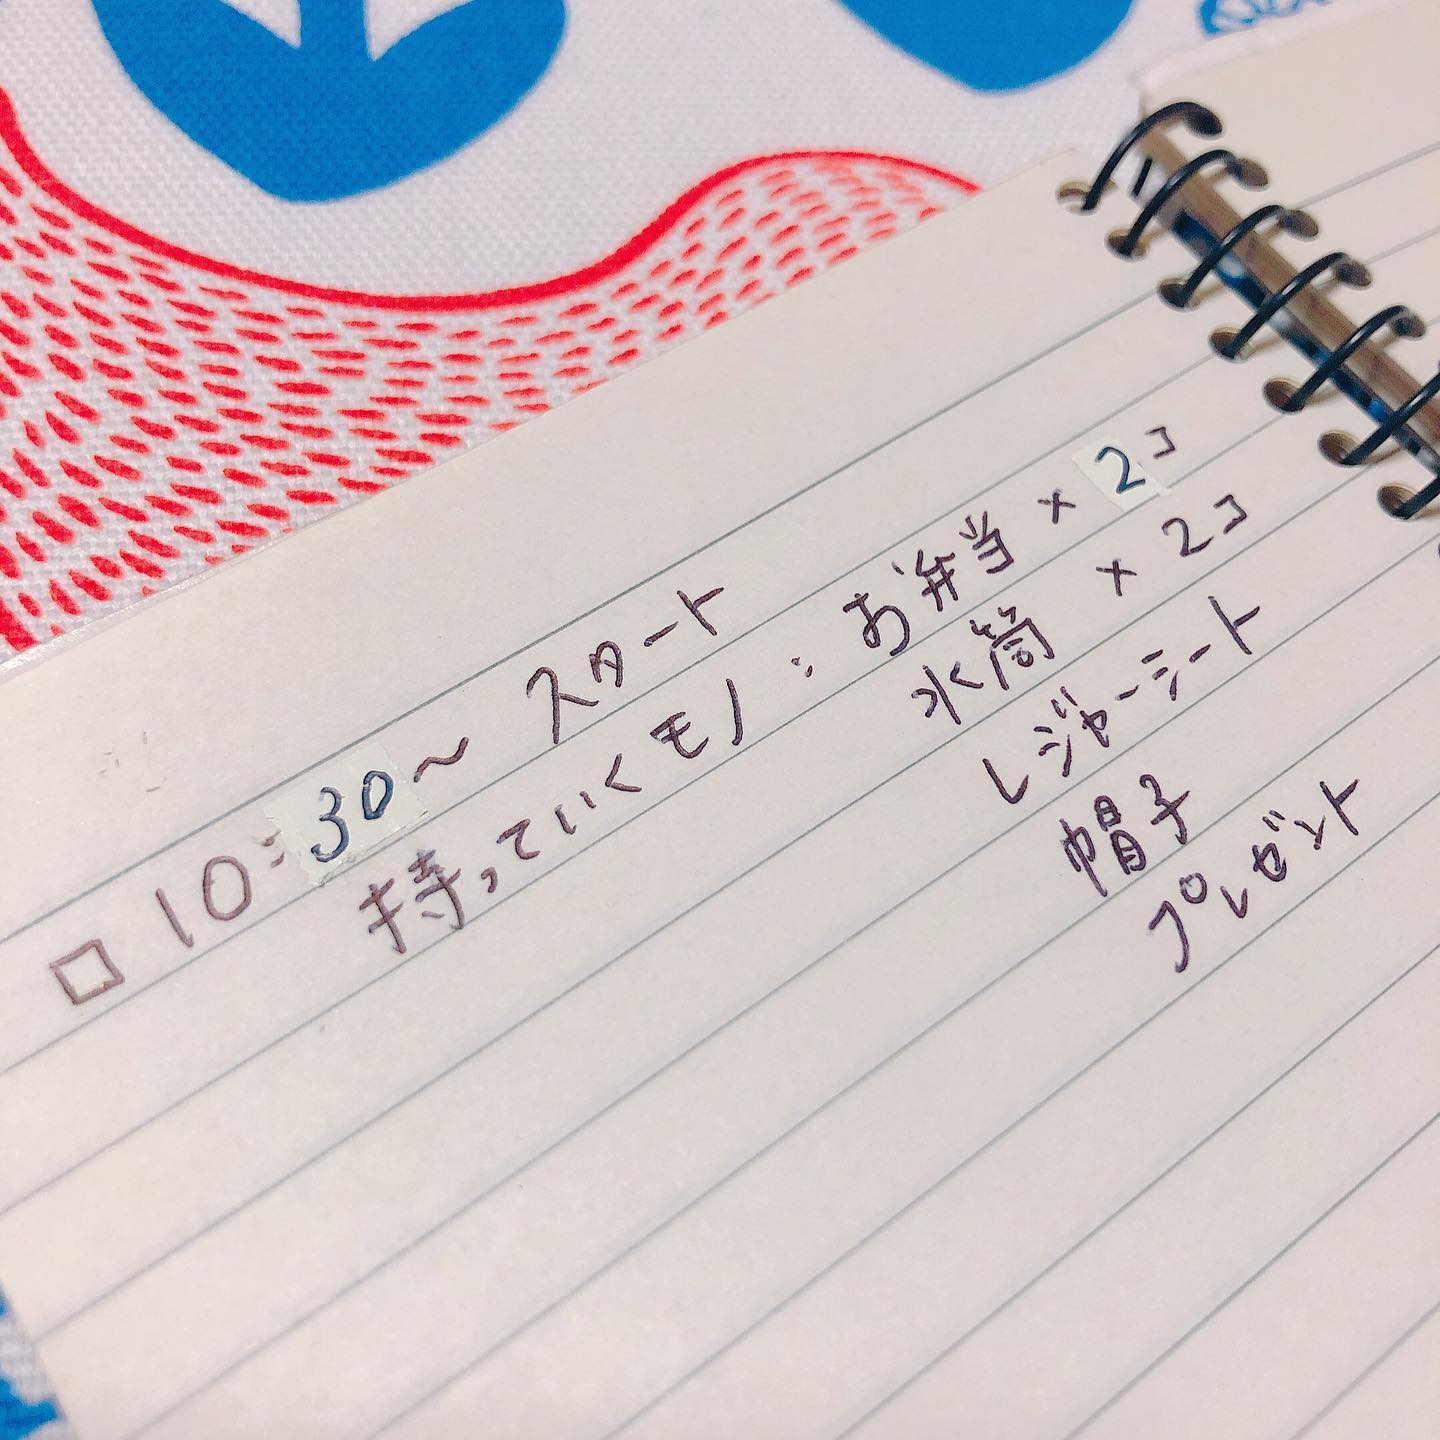 □ 10:30〜 スタート
持っていくモノ : お弁当 × 2コ
水筒 × 2コ
レジャーシート
帽子
プレゼント